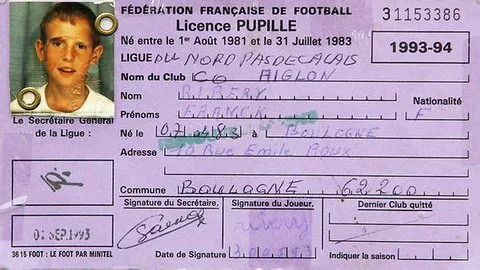 FÉDÉRATION FRANÇAISE DE FOOTBALL
31153386
Licence PUPILLE
Né entre le 1er Août 1981 et le 31 Juillet 1983
1993-94
LIGUE DU NORD PAS DE CALAIS
Nom du Club CO AIGLON
Nom RIBERY
Prénoms FRANCK
Nationalité F
Le Secrétaire Général de la Ligue :
Né le 07 04 83 à BOULOGNE
Adresse 10 Rue Emile ROUX
Commune BOULOGNE 62200
Signature du Secrétaire.
Signature du Joueur.
Dernier Club quitté
01 SEP. 1993
Date de Signature
Indiquer la saison
3615 FOOT : LE FOOT PAR MINITEL